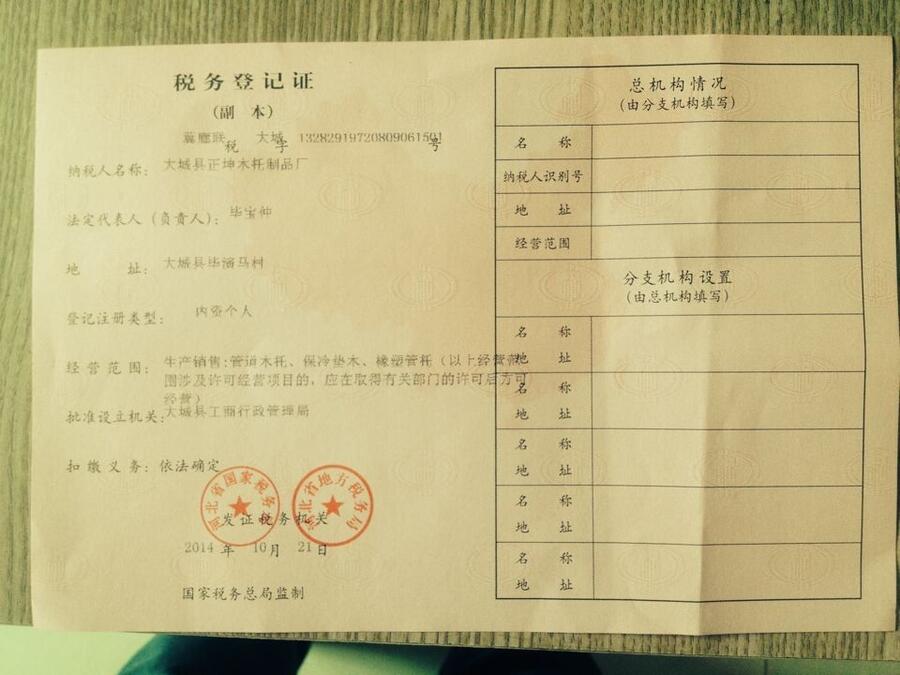 税务登记证
(副 本)
冀廊联 税 大城 字 13282919720809061501 号
纳税人名称: 大城县正坤木托制品厂
法定代表人(负责人): 毕宝仲
地 址: 大城县毕演马村
登记注册类型: 内资个人
经营范围: 生产销售:管道木托、保冷垫木、橡塑管托(以上经营范
围涉及许可经营项目的,应在取得有关部门的许可后方可
经营)
批准设立机关: 大城县工商行政管理局
扣缴义务: 依法确定
河北省国家税务局
河北省地方税务局
发证税务机关
2014 年 10 月 21 日
国家税务总局监制
总机构情况
(由分支机构填写)
名 称
纳税人识别号
地 址
经营范围
分支机构设置
(由总机构填写)
名 称
地 址
名 称
地 址
名 称
地 址
名 称
地 址
名 称
地 址